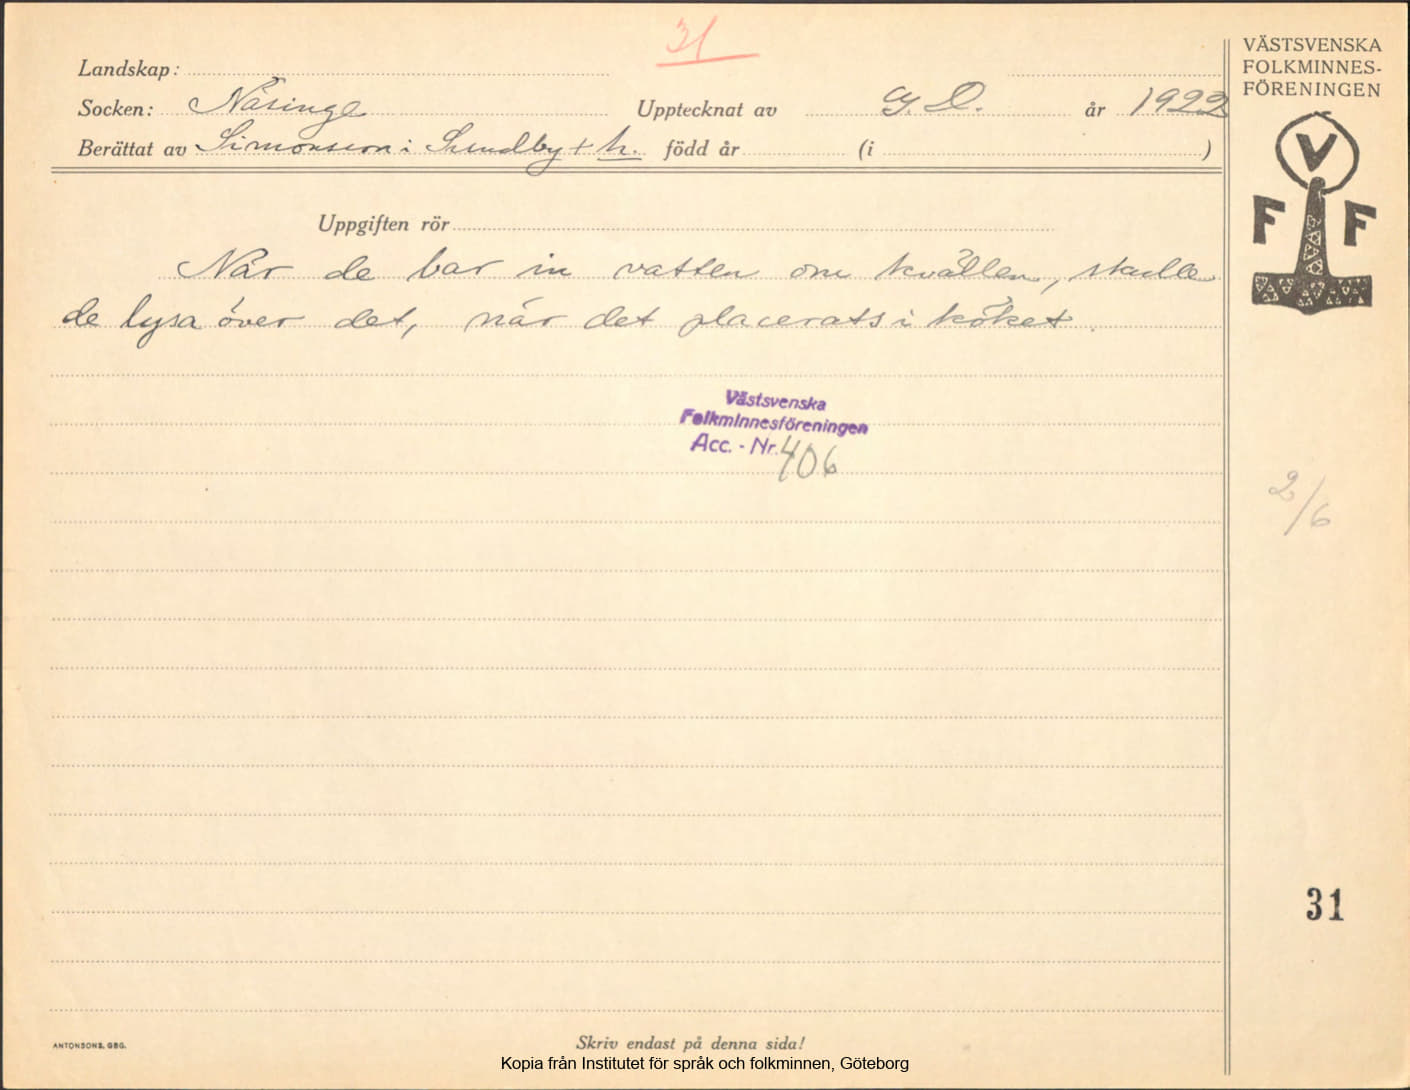 31
Landskap:
Socken: Näsinge Upptecknat av G. D. år 1922
Berättat av Simonsson i Sundby + h. född år (i )
Uppgiften rör
När de bar in vatten om kvällen, skulle
de lysa över det, när det placerats i köket.
Västsvenska
Folkminnesföreningen
Acc. - Nr. 406
VÄSTSVENSKA
FOLKMINNES-
FÖRENINGEN
V
F F
2/6
31
ANTONSONS, GBG.
Skriv endast på denna sida!
Kopia från Institutet för språk och folkminnen, Göteborg